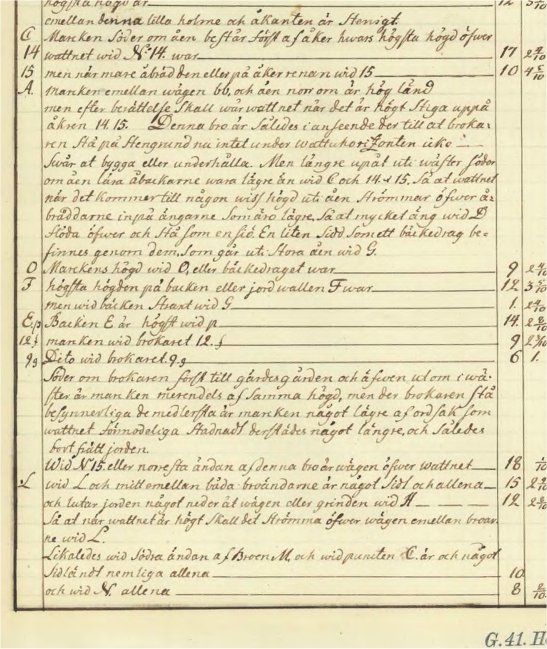 högsta högd är 12 5/10
emellan denna lilla holme och åkanten är Stenigt.
C Marcken Söder om åen består först af åker hvars högsta högd öfwer
14 wattnet wid No 14. war 17 2 4/10
15 men närmare åbrädden eller på åkerrenan wid 15 10 4 5/10
A. marcken emellan wägen bb, och åen norr om är hög länd
men efter berättelse Skall wårwattnet när det är högt Stiga uppå
åkren 14. 15. Denna bro är Således i anseende der till at broka-
ren Stå på Stengrund nu intet under Wattuhorizonten icke
Swår at bygga eller underhålla. Men längre upåt uti wäster Söder
om åen lära åbackarne wara lägre än wid C och 14 & 15, Så at wattnet
när det kommer till någon wiss högd uti åen Strömmar öfwer å-
bräddarne in på ängarne Som äro lägre, Så at mycket äng wid D
Flöda öfwer och Stå Som en Siö. En liten Sidd Som ett bäckedrag be-
finnes genom dem, Som går uti Stora åen wid G.
O Marckens högd wid O, eller bäckedraget war 9 2 4/10
F högsta högden på backen eller jordwallen F war 12 3 5/10
men wid bäcken Straxt wid G 1. 2 4/10
E,p Backen E är högst wid p 14. 2 8/10
12.f marcken wid brokaret 12. f 9 2 3/10
9g Dito wid brokaret 9.g 6 1.
Söder om brokaren först till gärdesgården och äfwen utom i wä-
ster är marcken merendels af Samma högd, men der brokaren Stå
besynnerliga de medlersta är marcken något lägre af ordsak, Som
wattnet förmodeliga Stadnadt derstädes något längre, och Således
bort frätt jorden.
Wid N 15. eller norrsta ändan af denna bro är wägen öfwer wattnet 18 1/10
L wid L och mitt emellan båda broändarne är något Sidt och allena 15 2 9/10
och lutar jorden något neder åt wägen eller grinden wid H 12 2 8/10
Så at när wattnet är högt Skall det Strömma öfwer wägen emellan broar-
ne wid L.
Likaledes wid Södra ändan af Broen M, och wid puncten C. är och något
Sidländt nemliga allena 10
och wid N. allena 8 8/10
G.41. H